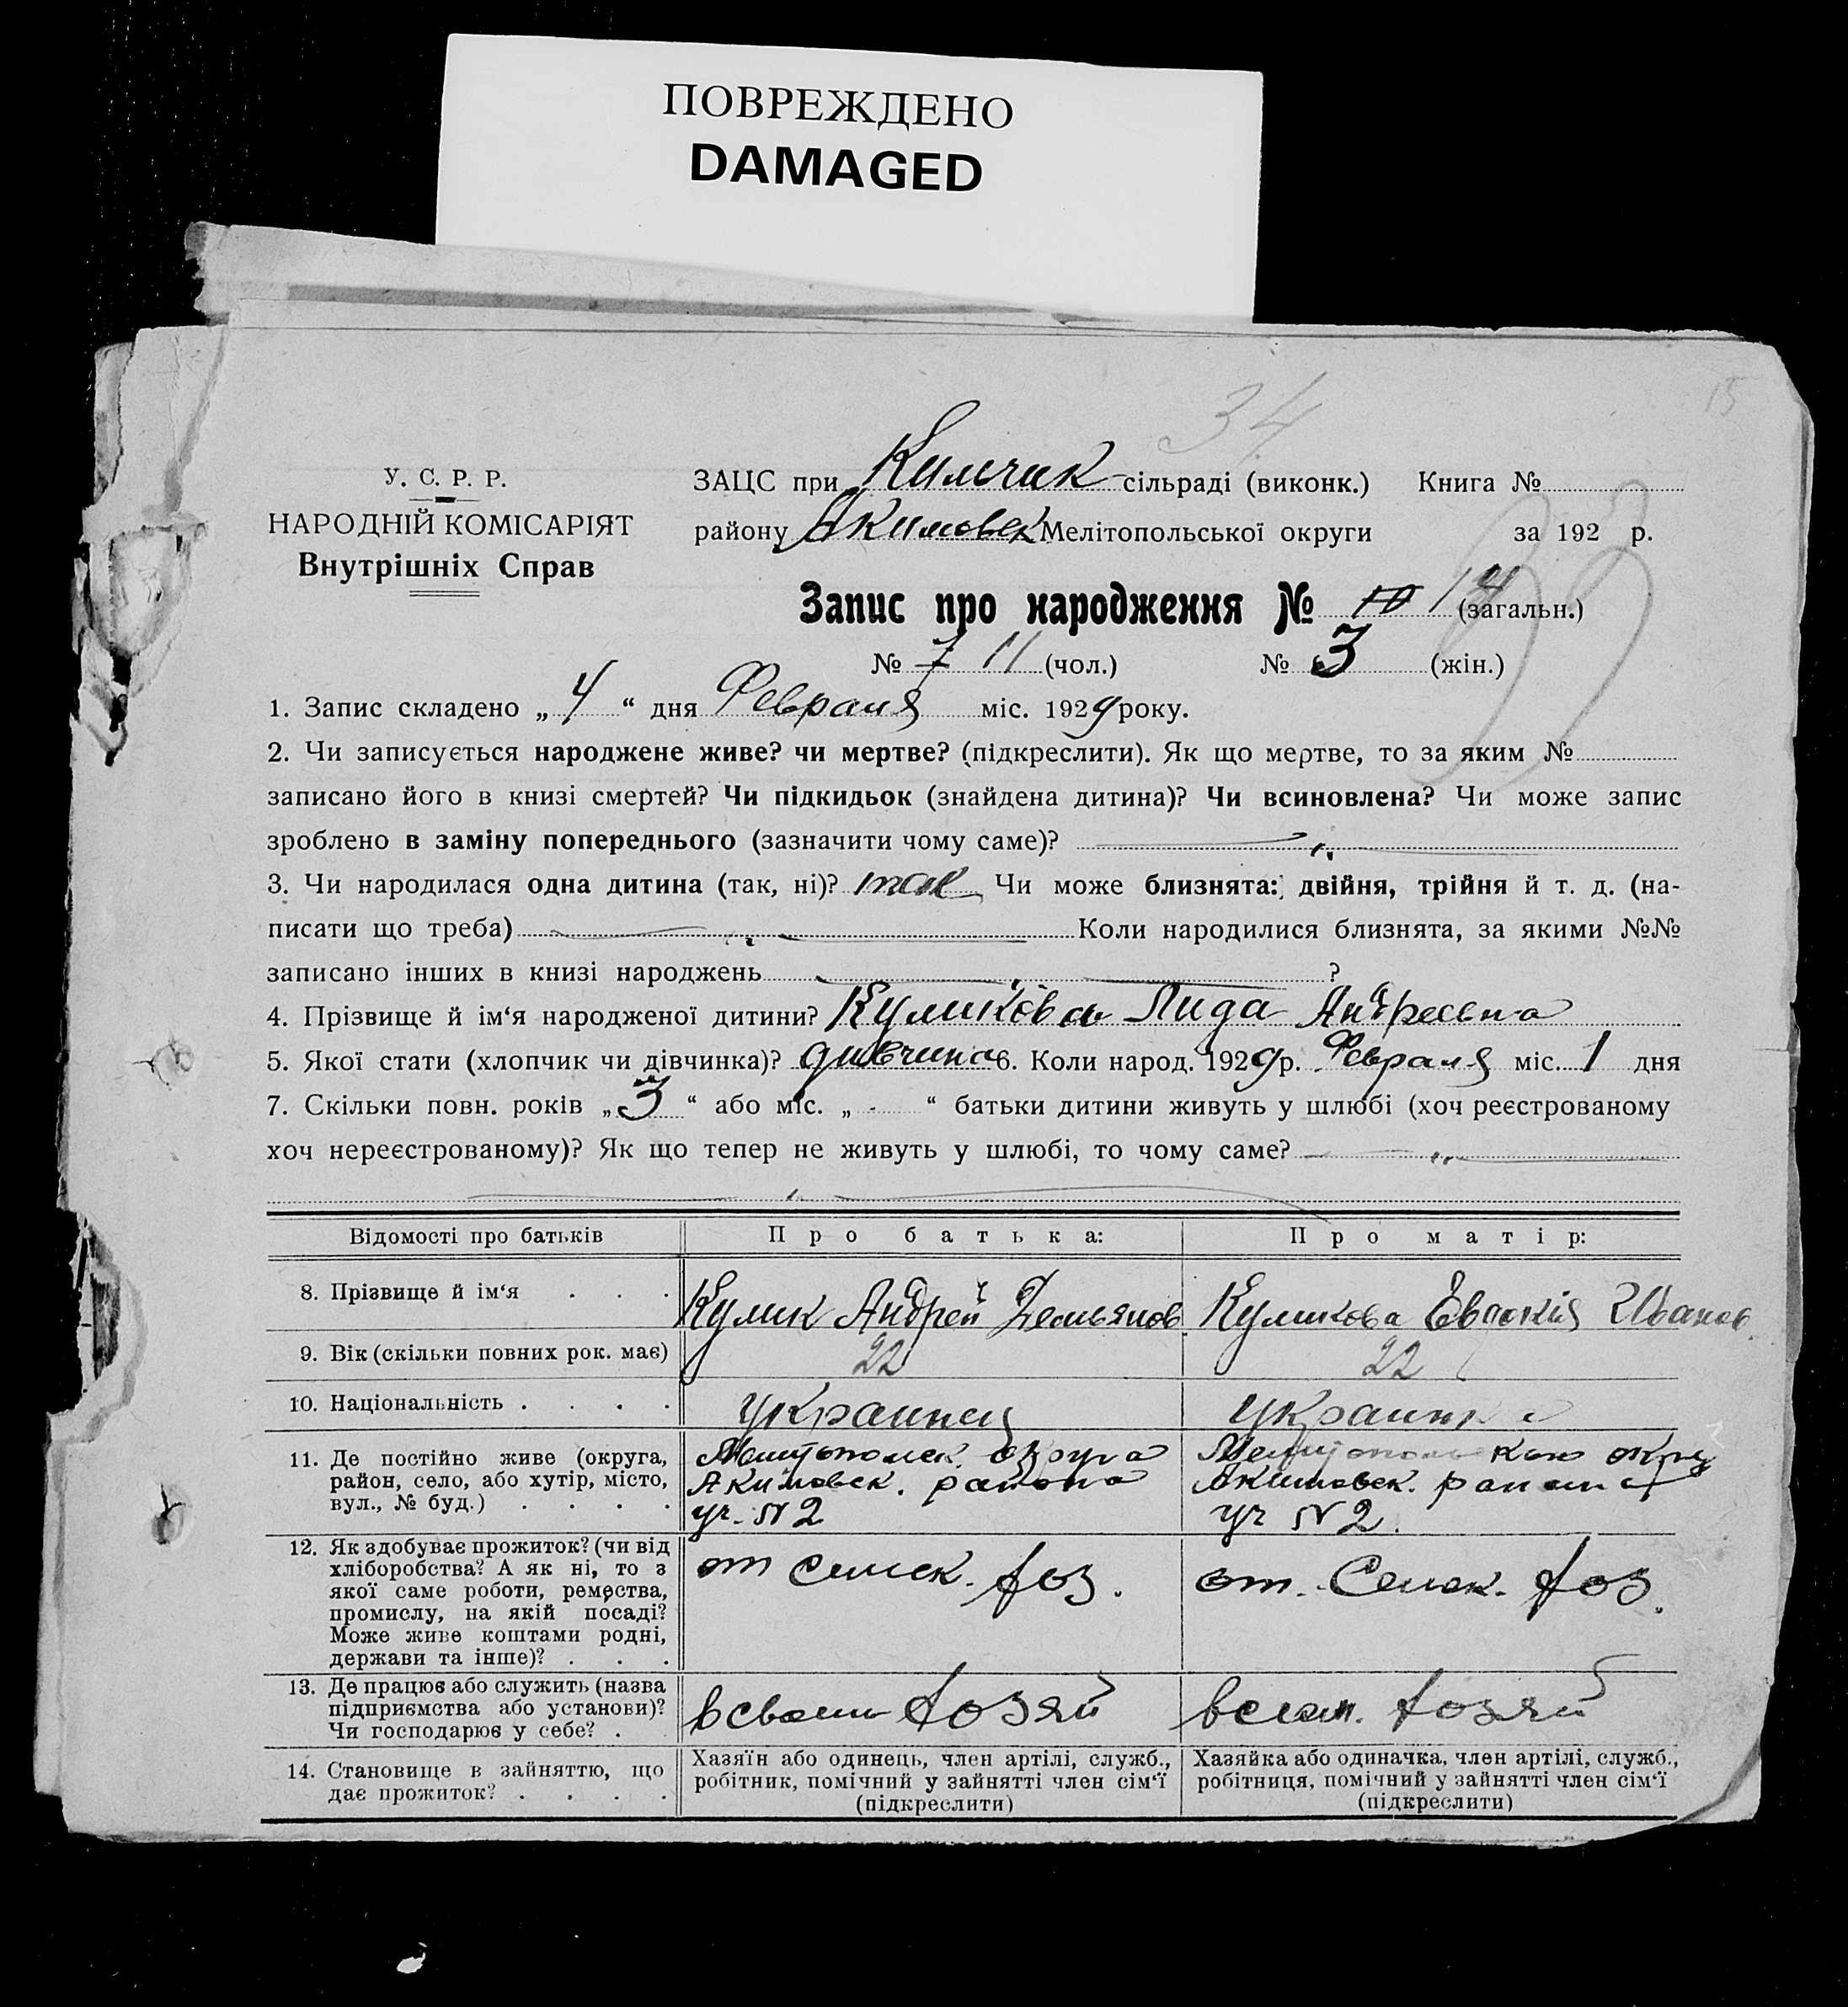 ПОВРЕЖДЕНО
DAMAGED
34
15
У. С. Р. Р.
НАРОДНІЙ КОМІСАРІЯТ
Внутрішніх Справ
ЗАЦС при Кимчик сільраді (виконк.) Книга №
району Акимовск Мелітопольської округи за 192 р.
Запис про народження № 10 14 (загальн.)
№ 7 11 (чол.) № 3 (жін.)
1. Запис складено „ 4 “ дня Февраля міс. 1929 року.
2. Чи записується народжене живе? чи мертве? (підкреслити). Як що мертве, то за яким №
записано його в книзі смертей? Чи підкидьок (знайдена дитина)? Чи всиновлена? Чи може запис
зроблено в заміну попереднього (зазначити чому саме)?
3. Чи народилася одна дитина (так, ні)? так Чи може близнята: двійня, трійня й т. д. (на-
писати що треба) Коли народилися близнята, за якими №№
записано інших в книзі народжень ?
4. Прізвище й ім‘я народженої дитини? Куликова Лида Андреевна
5. Якої стати (хлопчик чи дівчинка)? дивчина 6. Коли народ. 1929 р. Февраля міс. 1 дня
7. Скільки повн. років „ 3 “ або міс. „ - “ батьки дитини живуть у шлюбі (хоч реєстрованому
хоч нереєстрованому)? Як що тепер не живуть у шлюбі, то чому саме?
Відомості про батьків Про батька: Про матір:
8. Прізвище й ім‘я . . . Кулик Андрей Демьянов. Куликова Евдокия Иванов.
9. Вік (скільки повних рок. має) 22 22
10. Національність . . . . украинец украинка
11. Де постійно живе (округа, район, село, або хутір, місто, вул., № буд.) . . . .
Мелитополск. округа
Акимовск. района
уч. N 2
Мелитополь кою окру
Акимовск. района
уч N 2.
12. Як здобуває прожиток? (чи від хліборобства? А як ні, то з якої саме роботи, ремества, промислу, на якій посаді? Може живе коштами родні, держави та інше)? . . .
от сельск. хоз.
от. Сельск. хоз.
13. Де працює або служить (назва підприємства або установи)? Чи господарює у себе? .
в своем хозяй
в своем. хозяй
14. Становище в зайняттю, що дає прожиток? . . . .
Хазяїн або одинець, член артілі, служб., робітник, помічний у зайнятті член сім‘ї (підкреслити)
Хазяйка або одиначка, член артілі, служб., робітниця, помічний у зайнятті член сім‘ї (підкреслити)